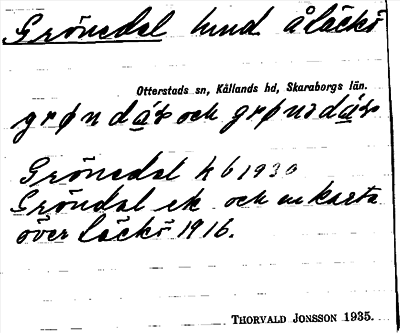 Grönedal lund å läckö
Otterstads sn, Kållands hd, Skaraborgs län.
grøndá̱ls och grønsdá̱ls
Grönedal kb 1930
Gröndal ek och en karta
över läckö 1916.
THORVALD JONSSON 1935.